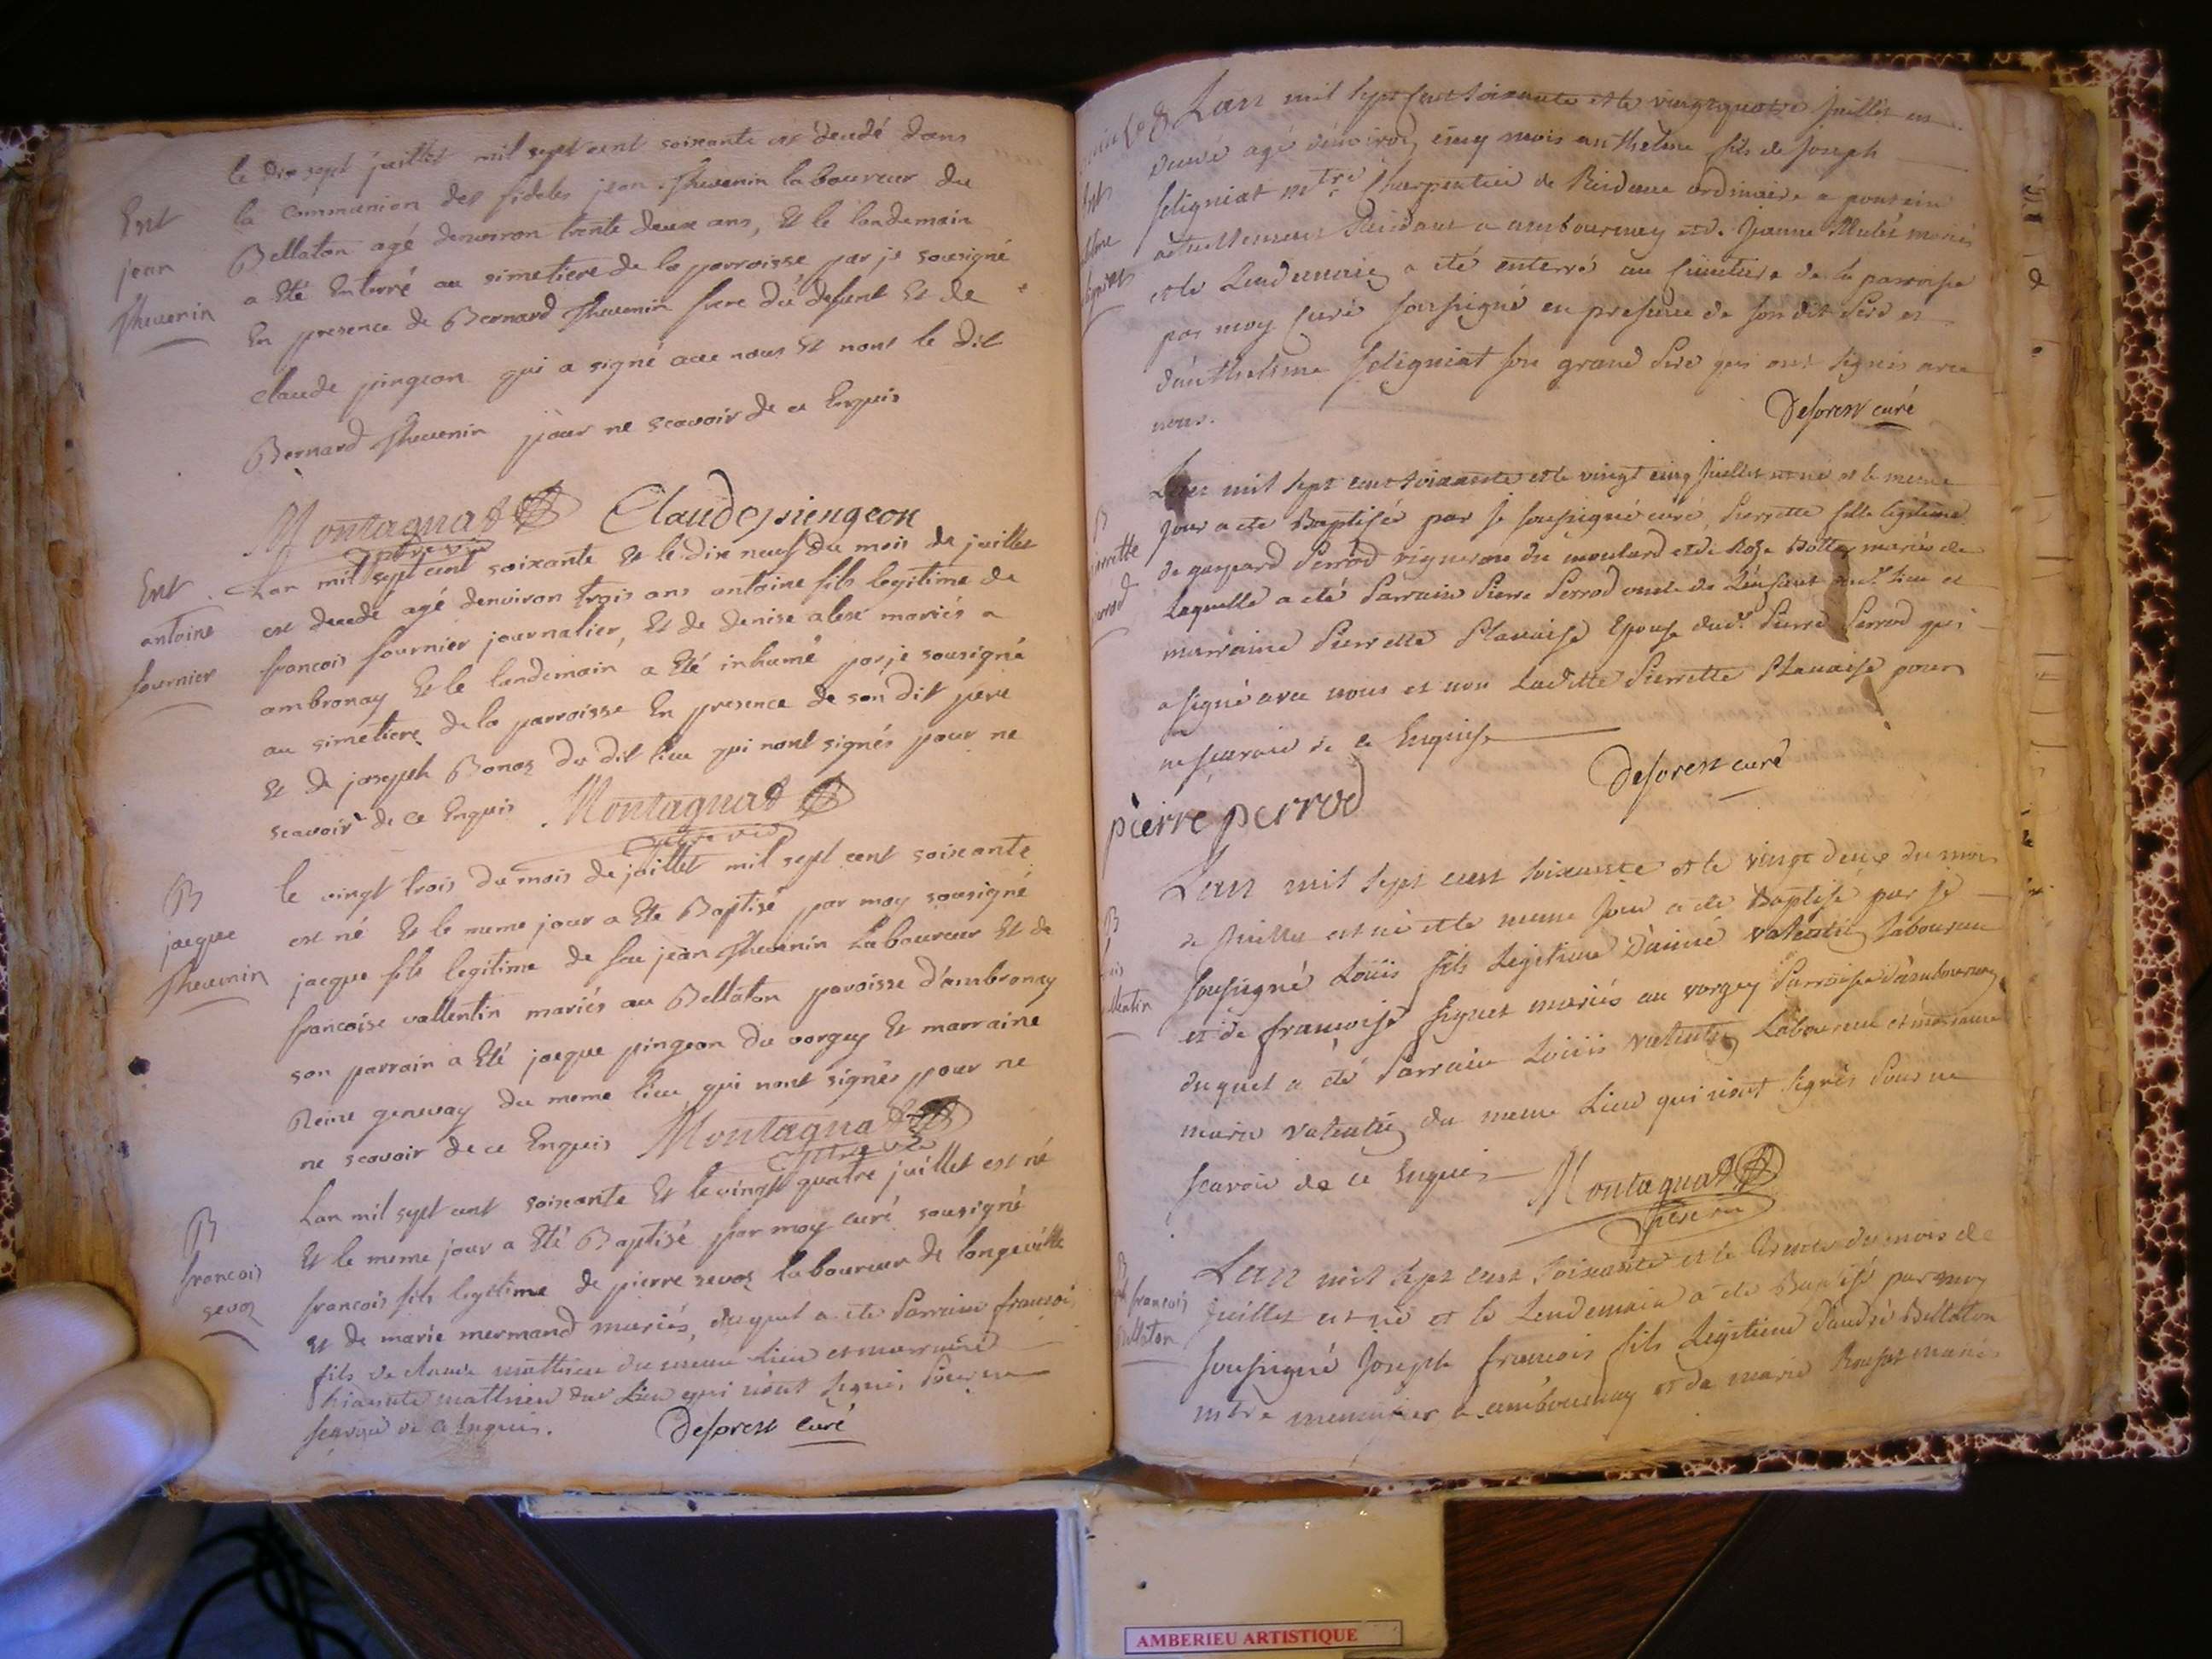 le dix sept juillet mil sept cent soixante est decedé dans
Ent
la communion des fideles jean Thevenin laboureur du
jean
Bellaton agé denviron trente deux ans, Et le landemain
Thevenin
a Eté Enterré au simetiere de la parroisse par je sousigné
En presence de Bernard Thevenin frere du defunt Et de
claude pingeon qui a signé avec nous Et nont le dit
Bernard Thevenin pour ne scavoir de ce Enquis
Montagnat Claude piengeon
ptre vic
Ent
Lan mil sept cent soixante Et le dix neuf du mois de juillet
antoine
est decedé agé denviron trois ans antoine fils legitime de
fournier
francois fournier journalier, Et de denise mariés a
ambronay Et le landemain a Eté inhumé par je sousigné
au simetiere de la parroisse En presence de son dit pere
Et de joseph Bonaz du dit lieu qui nont signés pour ne
scavoir de ce Enquis Montagnat
ptre vic
B
le vingt trois du mois de juillet mil sept cent soixante
jacque
est né Et le meme jour a Eté Baptisé par moy sousigné
Thevenin
jacque fils legitime de feu jean Thevenin Laboureur Et de
francoise vallentin mariés au Bellaton paroisse d'ambronay
son parrain a Eté jacque pingeon du vorgey Et marraine
Reine genevay du meme lieu qui nont signés pour ne
ne scavoir de ce Enquis Montagnat
ptre vic
B
Lan mil sept cent soixante Et le vingt quatre juillet est né
francois
Et le meme jour a Eté Baptisé par moy curé sousigné
sevoz
francois fils legitime de pierre sevoz laboureur de longeville
Et de marie mermand mariés, duquel a ete Parrain francois
fils de Claude mathieu du meme lieu et marraine
mathieu dud lieu qui n'ont signés Pour ne
scavoir de ce Enquis. Deforest curé
Lan mil sept cent soixante et le vingt quatre Juillet est
decedé agé denviron cinq mois anthelme fils de Joseph
seligniat mtre Charpentier de Residence ordinaire a poncin
actuellement Residant a ambournay et de Jeanne mariés
et le Lendemain a eté enterré au Cimetiere de la paroisse
par moy Curé soussigné en presence de son dit Pere et
d'anthelme seligniat son grand Pere qui ont signés avec
nous. Deforest curé
B
Lan mil sept cent soixante et le vingt cinq Juillet est né et le meme
Jour a ete Baptisée par je soussigné curé, Pierrette fille legitime
de gaspard Perrod vigneron du moulard et de Roze mariés de
laquelle a eté Parrain Pierre Perrod oncle de L'enfant dud. lieu et
marraine Pierrette Plavaise Epouse dud. Pierre Perrod qui
a signé avec nous et non Laditte Pierrette Plavaise pour
ne scavoir de ce Enquise
Deforest curé
pierre perrod
B
Lan mil sept cent soixante et le vingt deux du mois
de Juillet est né et le meme Jour a ete Baptisé par je
soussigné Loüis fils Legitime d'aimé valentin Laboureur
et de francoise mariés au vorgey Parroisse d'ambournay
duquel a été Parrain Loüis valentin Laboureur et marraine
marie valentin du meme Lieu qui n'ont signés Pour ne
scavoir de ce Enquis Montagnat
ptre vic
Lan mil sept cent soixante et le trente du mois de
francois
Juillet est né et le Lendemain a ete Baptisé par moy
Bellaton
soussigné Joseph francois fils Legitime d'andré Bellaton
mtre menuisier a ambournay et de marie mariés
AMBERIEU ARTISTIQUE